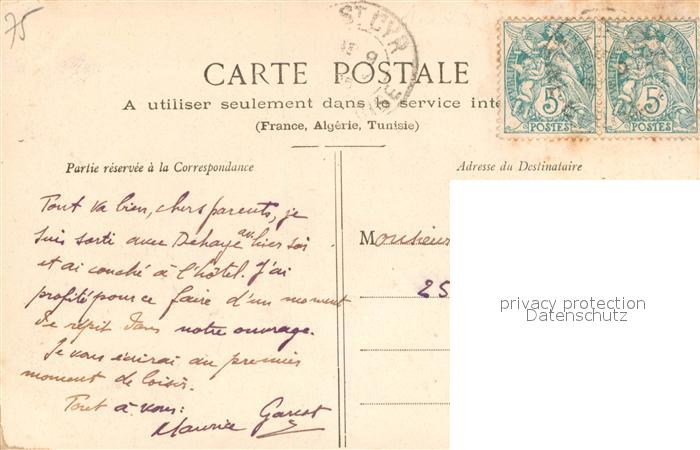 75
ST CYR
9
CARTE POSTALE
A utiliser seulement dans le service inte
(France, Algérie, Tunisie)
5c 5c
POSTES POSTES
Partie réservée à la Correspondance
Adresse du Destinataire
Tout va bien, chers parents, je
suis sorti avec Dehaye av. hier soi
et ai couché à l'hôtel. J'ai
profité pour ce faire d'un moment
de répit dans notre ouvrage.
Je vous écrirai au premier
moment de loisir.
Tout à vous:
Maurice
Monsieur
25
privacy protection
Datenschutz